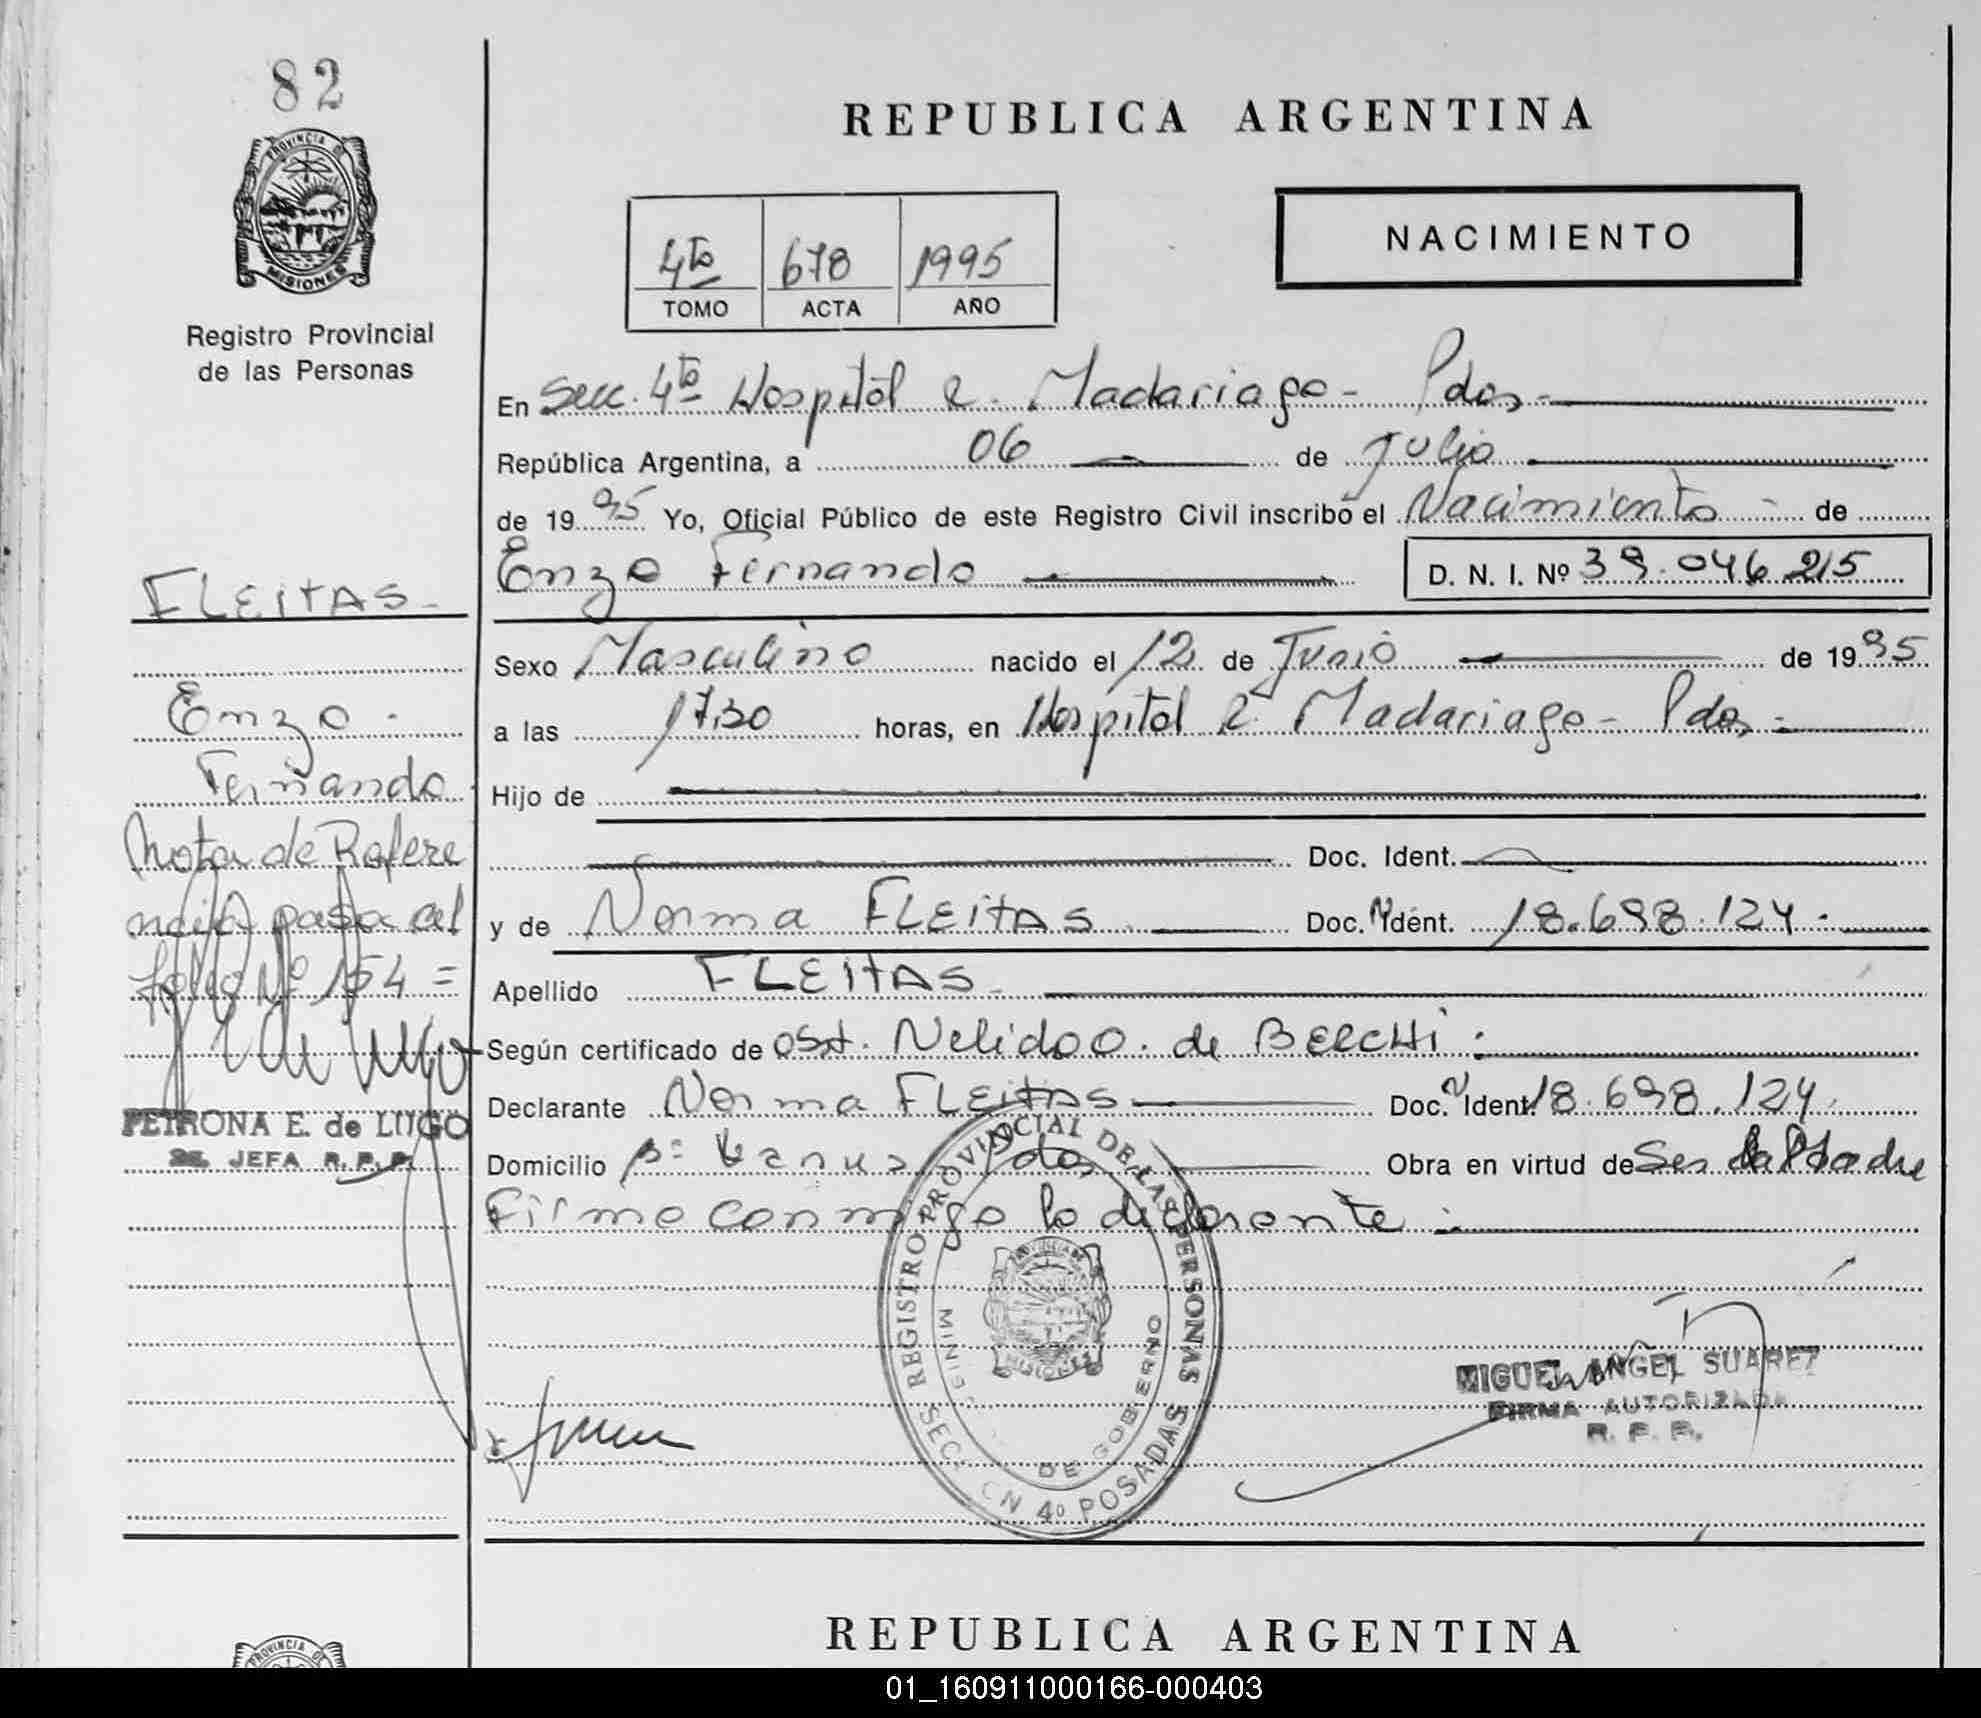 82
REPUBLICA ARGENTINA
PROVINCIA DE
MISIONES
Registro Provincial
de las Personas
4to 678 1995
TOMO ACTA AÑO
NACIMIENTO
En Secc. 4to Hospital R. Madariaga - Pdas.-
República Argentina, a 06 de Julio
de 1995 Yo, Oficial Público de este Registro Civil inscribo el Nacimiento - de
Enzo Fernando D. N. I. Nº 39.046.215
Sexo Masculino nacido el 12 de Junio de 1995
a las 17,30 horas, en Hospital R. Madariaga - Pdas.-
Hijo de
Doc. Ident.
y de Norma FLEITAS Doc. N Ident. 18.698.124.-
Apellido FLEITAS.-
Según certificado de Obst. Nelida O. de BELCHI.-
Declarante Norma FLEITAS Doc. N Ident. 18.698.124.
Domicilio Bº Pdas. Obra en virtud de Ser la Madre
Firma conmigo la declarante.-
FLEITAS.-
Enzo.-
Fernando
Nota de Refere
ncia pasa al
folio Nº 154 =
PETRONA E. de LUGO
JEFA R. P. P.
REGISTRO PROVINCIAL DE LAS PERSONAS
DE GOBIERNO
4º POSADAS
MISIONES
MIGUEL ANGEL SUAREZ
FIRMA AUTORIZADA
R. P. P.
PROVINCIA DE
REPUBLICA ARGENTINA
01_160911000166-000403